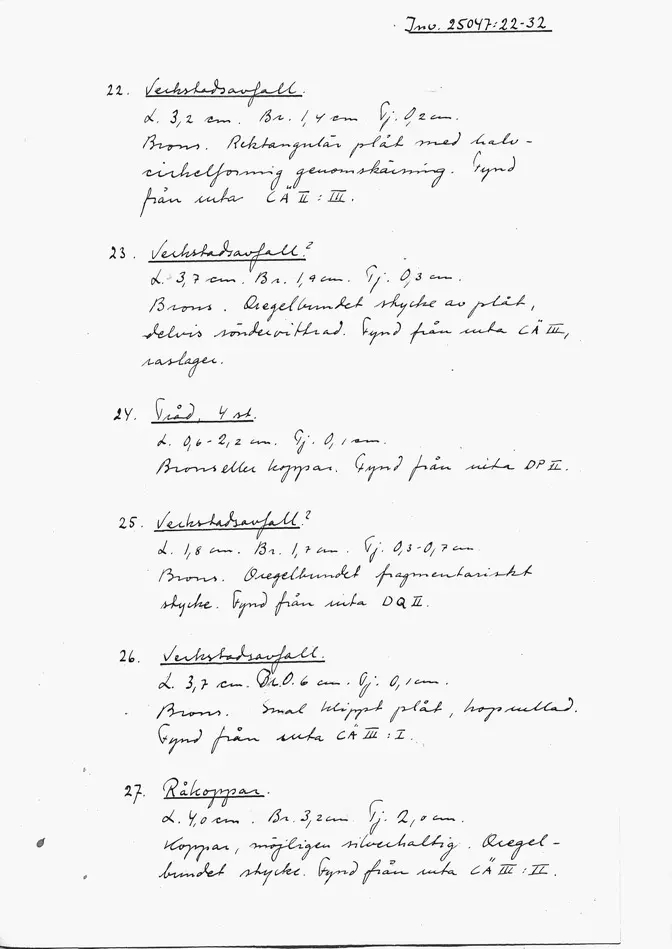 Inv. 25047:22-32
22. Verkstadsavfall.
L. 3,2 cm. Br. 1,4 cm Tj. 0,2 cm.
Brons. Rektangulär plåt med halv-
cirkelformig genomskärning. Fynd
från ruta CÄ II : III.
23. Verkstadsavfall?
L. 3,7 cm. Br. 1,9 cm. Tj. 0,3 cm.
Brons. Oregelbundet stycke av plåt,
delvis söndervittrad. Fynd från ruta CÄ III,
raslager.
24. Tråd, 4 st.
L. 0,6-2,2 cm. Tj. 0,1 cm.
Brons eller koppar. Fynd från ruta DP II.
25. Verkstadsavfall?
L. 1,8 cm. Br. 1,7 cm. Tj. 0,3-0,7 cm
Brons. Oregelbundet fragmentariskt
stycke. Fynd från ruta DQ II.
26. Verkstadsavfall.
L. 3,7 cm. Br. 0.6 cm. Tj. 0,1 cm.
Brons. Smal klippt plåt, hoprullad.
Fynd från ruta CÄ III : I.
27. Råkoppar.
L. 4,0 cm. Br. 3,2 cm Tj. 2,0 cm.
Koppar, möjligen silverhaltig. Oregel-
bundet stycke. Fynd från ruta CÄ III : II.